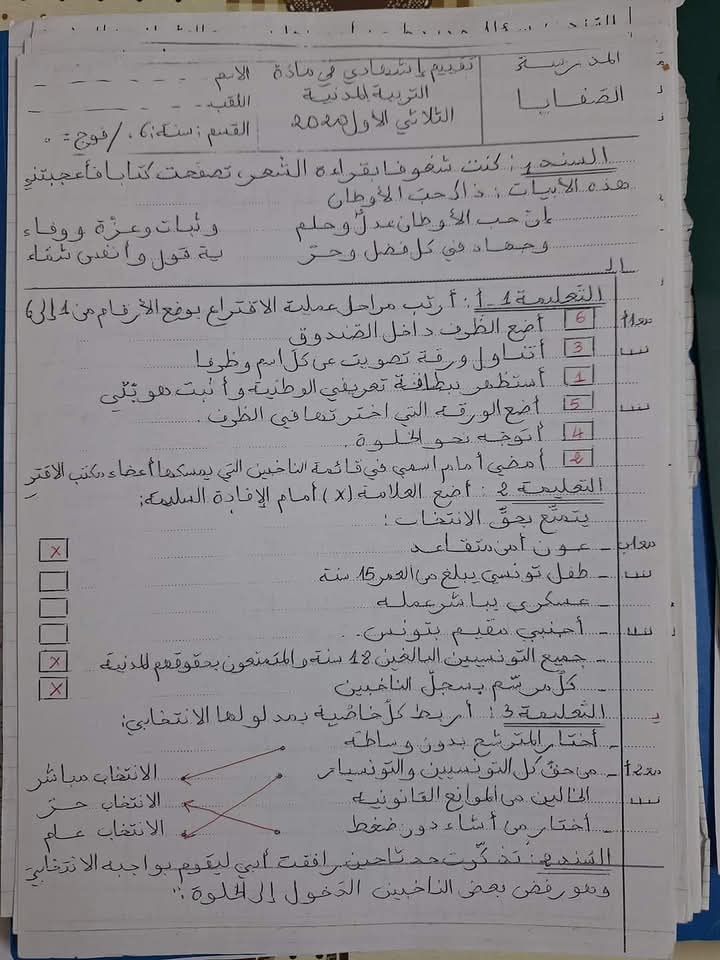 المدرسة
الصفايا
تقييم إشهادي في مادة
التربية المدنية
الثلاثي الأول 2020
الاسم
اللقب
القسم: سنة: 6 / فوج:
السند 1: كنت شغوفا بقراءة الشعر، تصفحت كتابا فأعجبتني
هذه الأبيات: ذاكر حب الأوطان
إن حب الأوطان عدل وحلم وثبات وعزّة ووفاء
وجهاد في كل فضل وحرّ ية قول وأنفس شمّاء
التعليمة 1-أ: أرتب مراحل عملية الاقتراع بوضع الأرقام من 1 إلى 6
معأ1
6 أضع الظرف داخل الصندوق
3 أتناول ورقة تصويت عن كل اسم وظرفا
1 أستظهر ببطاقة تعريفي الوطنية وأثبت هويّتي
5 أضع الورقة التي اخترتها في الظرف.
4 أتوجه نحو الخلوة.
2 أمضي أمام اسمي في قائمة الناخبين التي يمسكها أعضاء مكتب الاقتر
التعليمة 2: أضع العلامة (x) أمام الإفادة السليمة:
يتمتّع بحقّ الانتخاب:
مع1ب
- عون أمن متقاعد x
- طفل تونسي يبلغ من العمر 15 سنة
- عسكري يباشر عمله
- أجنبي مقيم بتونس.
- جميع التونسيين البالغين 18 سنة والمتمتعون بحقوقهم المدنية x
- كلّ مرسّم بسجلّ الناخبين x
التعليمة 3: أربط كلّ خاصّية بمدلولها الانتخابي:
- أختار المترشح بدون وساطة
الانتخاب مباشر
مع2أ
- من حق كل التونسيين والتونسيات
الخالين من الموانع القانونية
الانتخاب حرّ
- أختار من أشاء دون ضغط
الانتخاب عام
السند 2: تذكّرت حدثا حين رافقت أبي ليقوم بواجبه الانتخابي
وهو رفض بعض الناخبين الدخول إلى الخلوة: